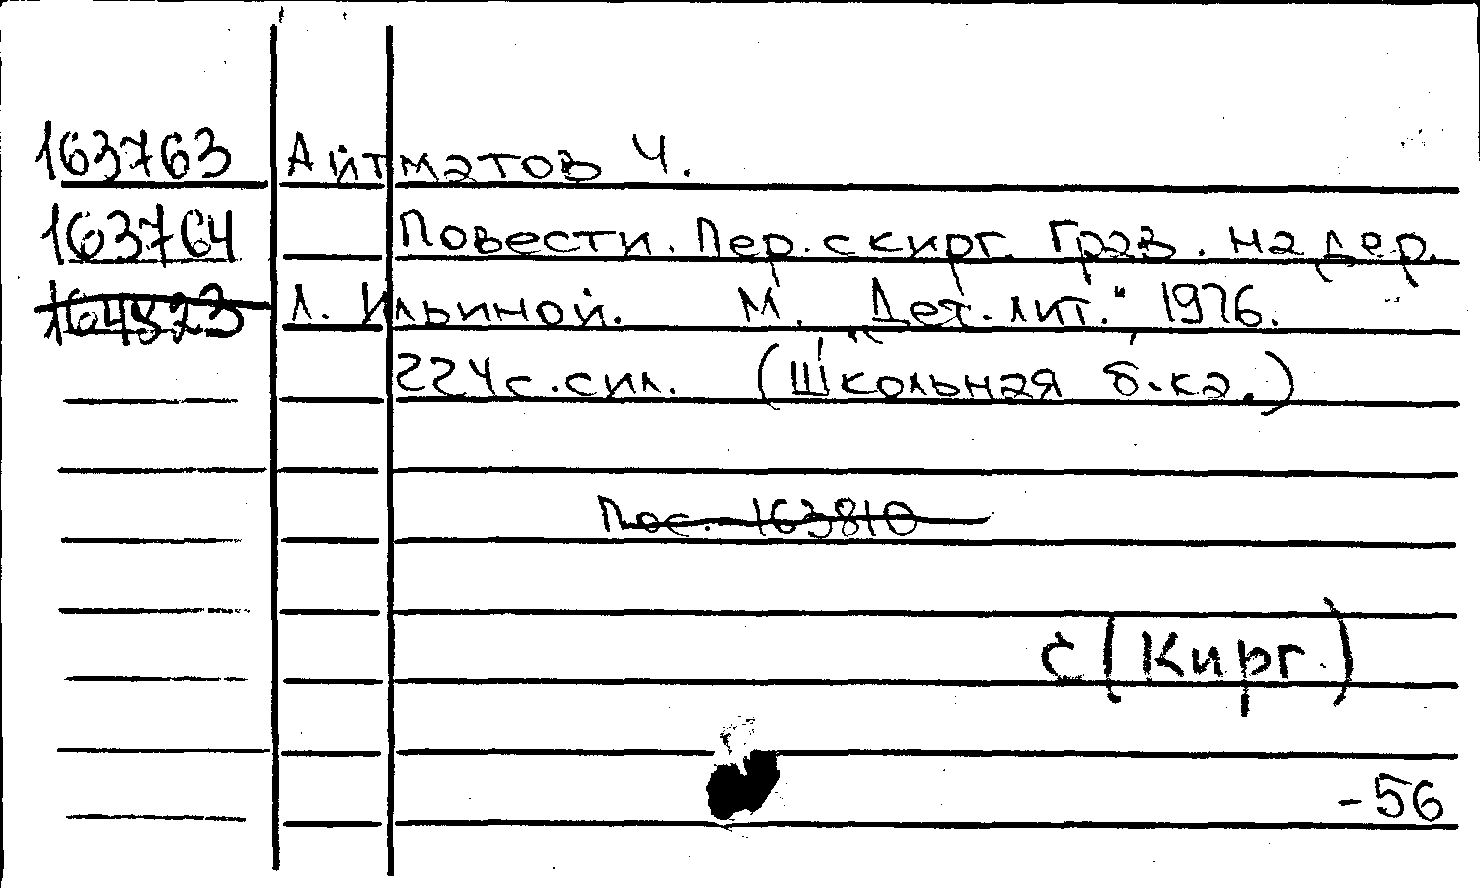 163763 Айтматов Ч.
163764 Повести. Пер. с кирг. Грав. на дер.
164823 Л. Ильиной. М. „Дет. лит." 1976.
224с. с ил. (Школьная б-ка.)
Пос. 163810
С (Кирг.)
-56